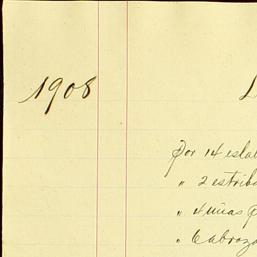 1908
L
Por 14 esla
" 2 estrib
" 4 uñas p
" Cabroza